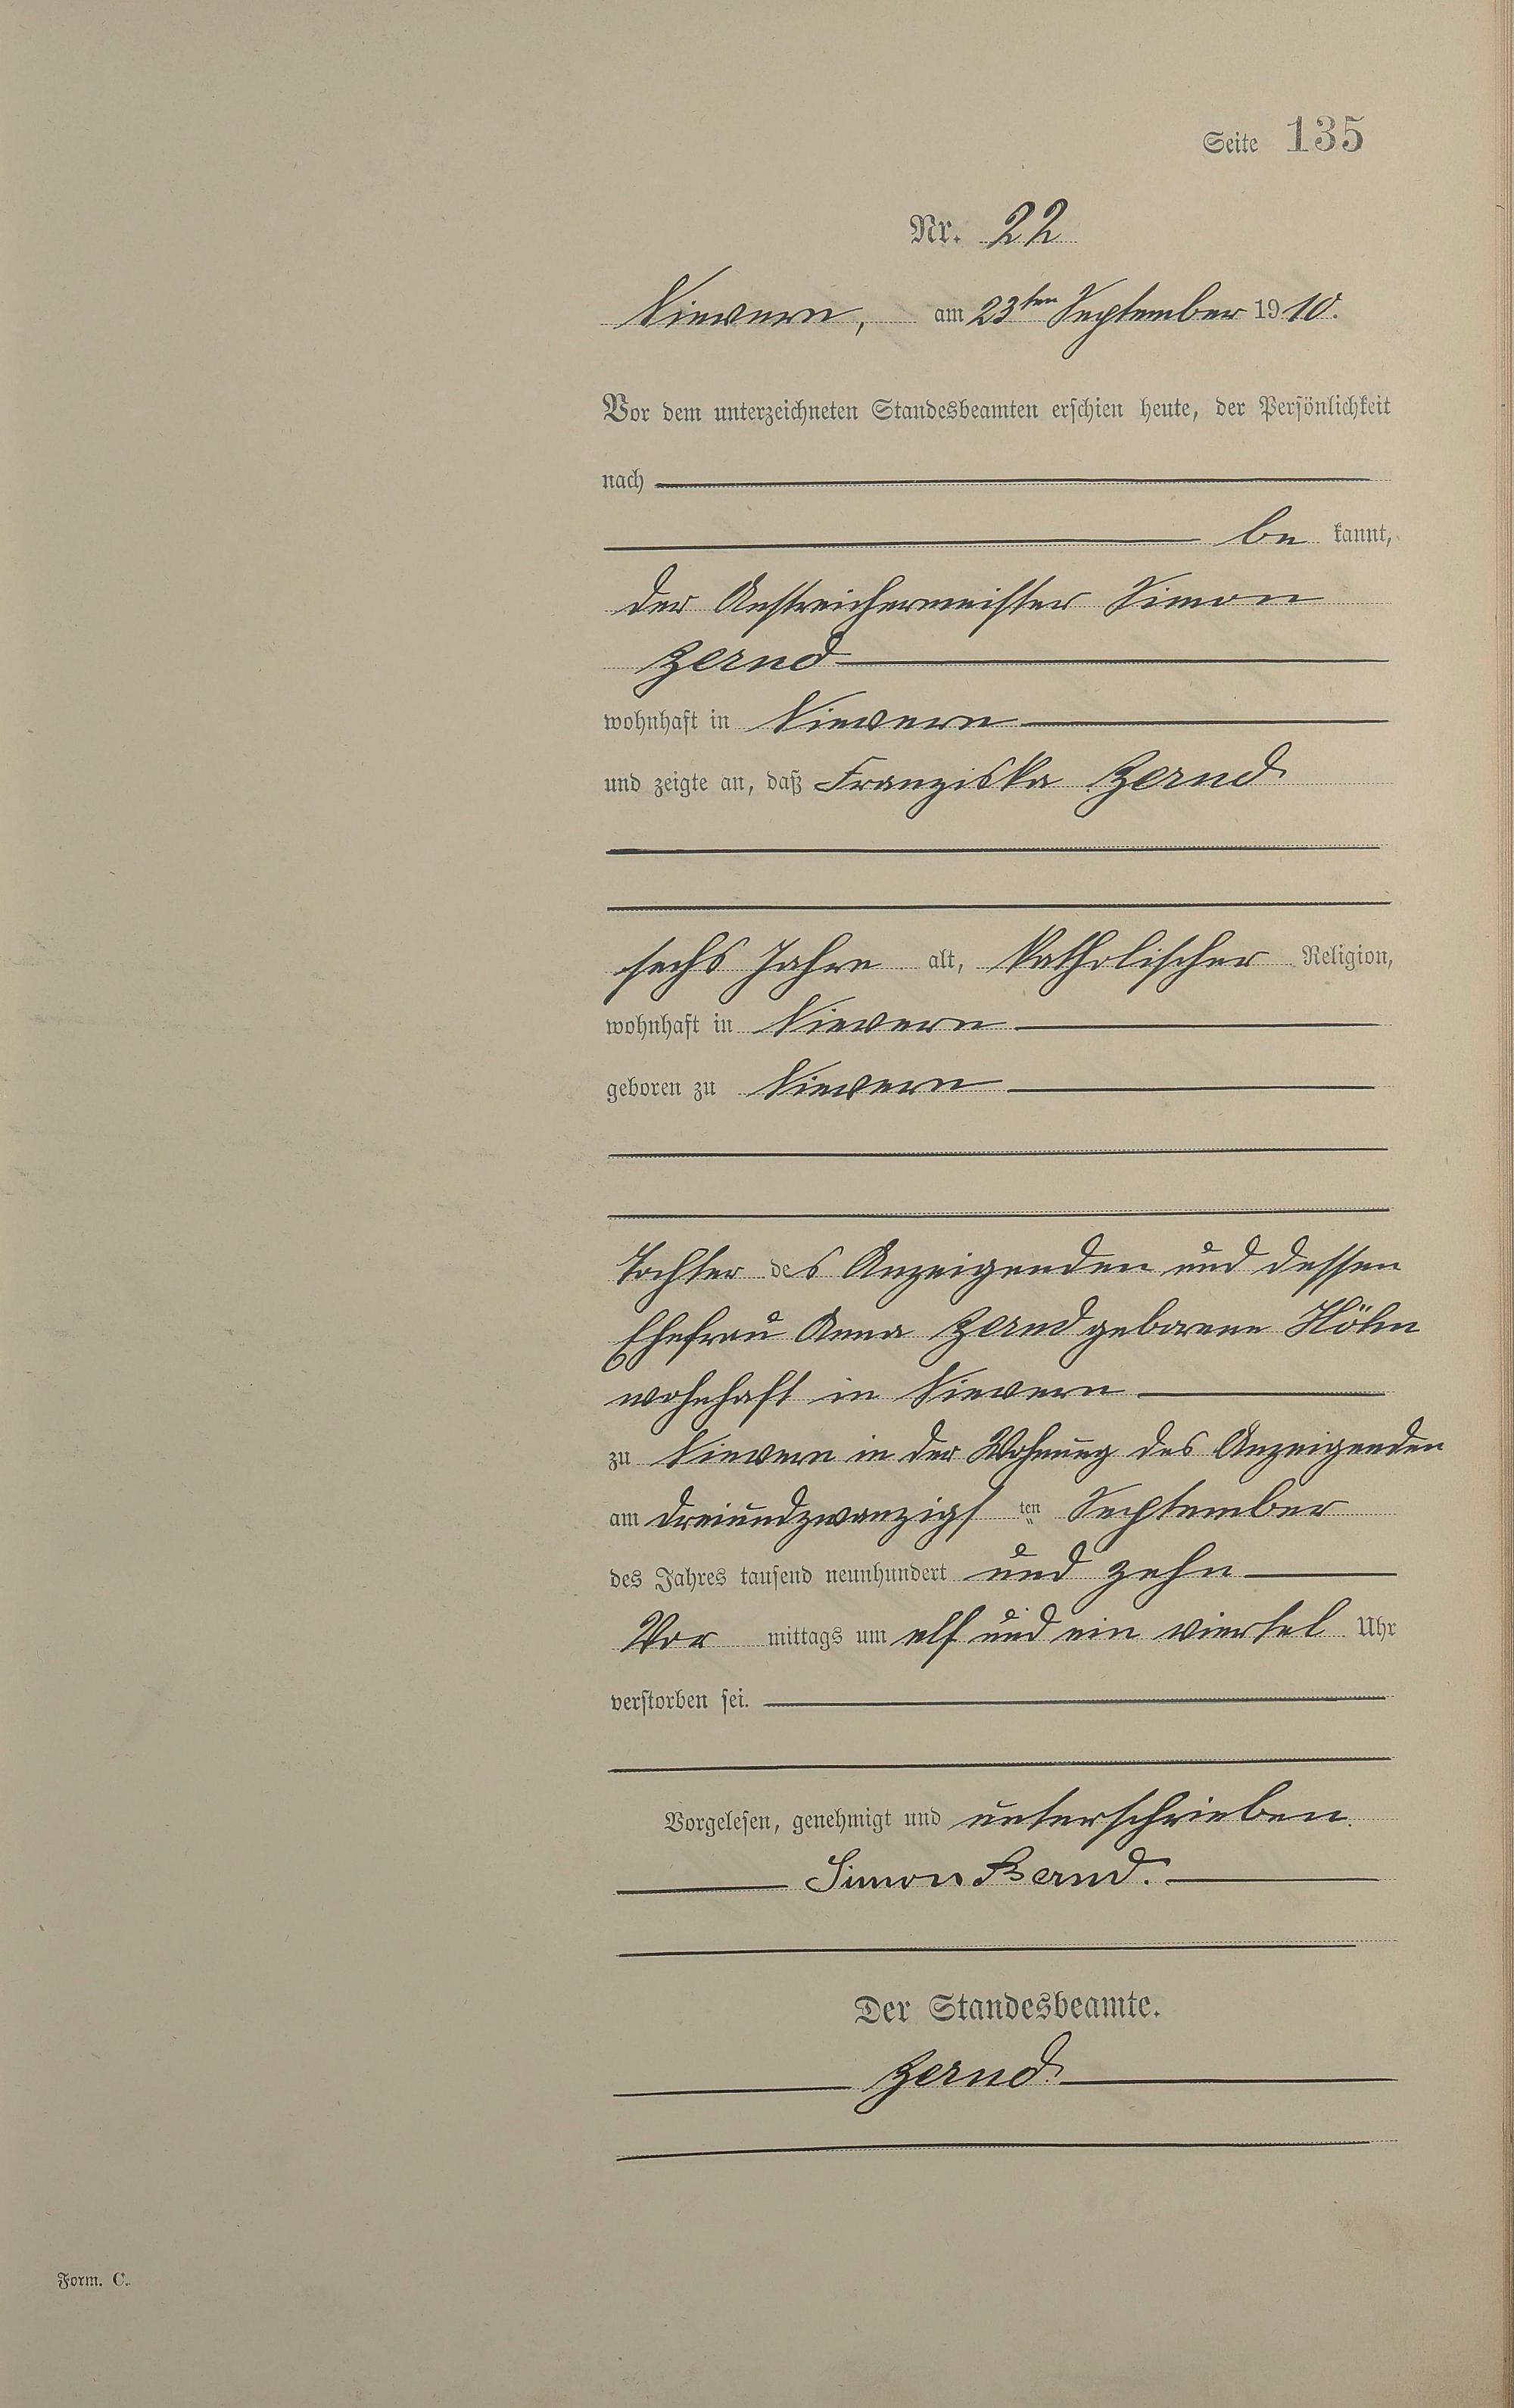 Seite 135
Nr. 22
Nievern, am 23ten September 1910.
Vor dem unterzeichneten Standesbeamten erschien heute, der Persönlichkeit
nach
be kannt,
der Anstreichermeister Simon
Bernd
wohnhaft in Nievern
und zeigte an, daß Franziska Bernd
sechs Jahre alt, katholischer Religion,
wohnhaft in Nievern
geboren zu Nievern
Tochter des Anzeigenden und dessen
Ehefrau Anna Bernd geborene Höhn
wohnhaft in Nievern
zu Nievern in der Wohnung des Anzeigenden
am dreiundzwanzigs ten September
des Jahres tausend neunhundert und zehn
Vor mittags um elf und ein viertel Uhr
verstorben sei.
Vorgelesen, genehmigt und unterschrieben.
Simon Bernd.
Der Standesbeamte.
Bernd.
Form. C.